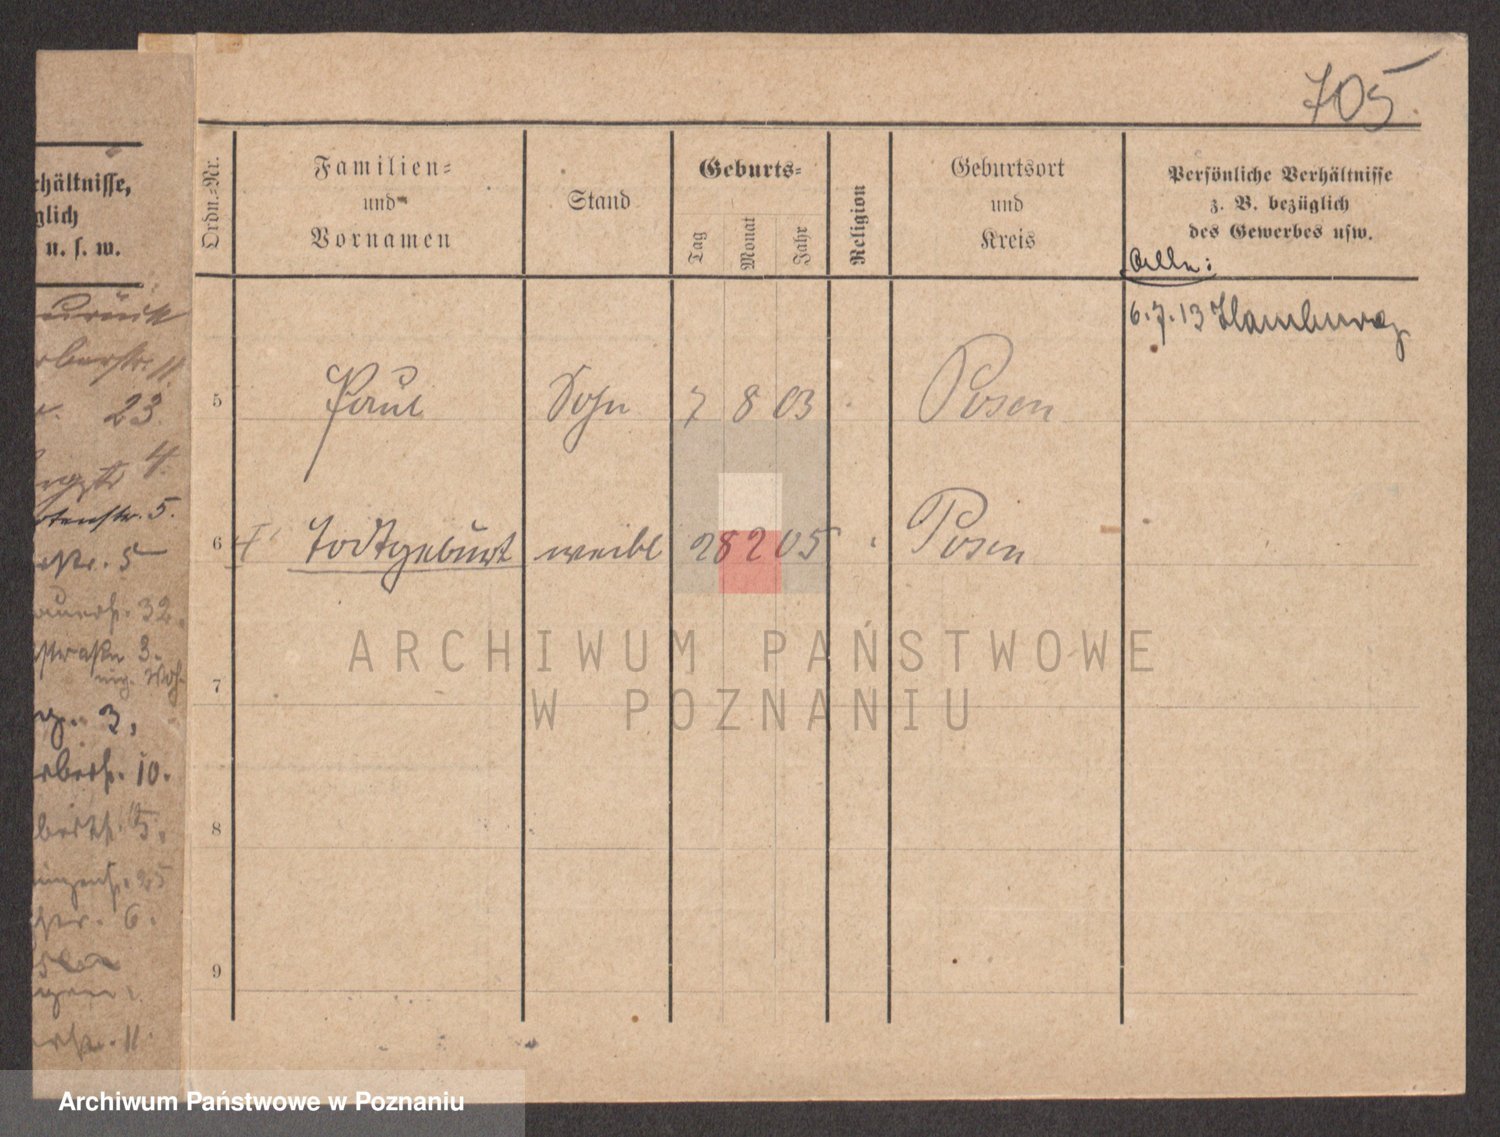 705.
rhältnisse,
glich
u. s. w.
zurück
rberstr. 11
23.
4.
rtenstr. 5.
str. 5
auerstr. 32.
straße 3.
3,
rberstr. 10.
5.
25
str. 6.
11.
Ordn.-Nr.
Familien-
und
Vornamen
Stand
Geburts-
Tag
Monat
Jahr
Religion
Geburtsort
und
Kreis
Persönliche Verhältnisse
z. B. bezüglich
des Gewerbes usw.
Alle:
6.7.13 Hamburg
5 Paul Sohn 7 8 03 Posen
6 Todtgeburt weibl 28 2 05 Posen
7
8
9
ARCHIWUM PAŃSTWOWE
W POZNANIU
Archiwum Państwowe w Poznaniu